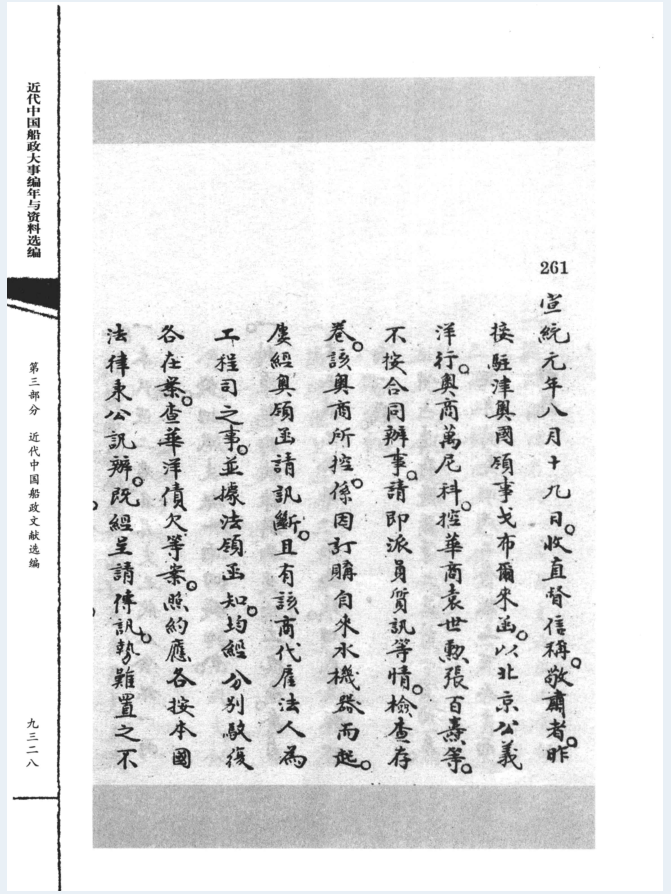 近代中国船政大事编年与资料选编
第三部分　近代中国船政文献选编
九三二八
261
宣統元年八月十九日。收直督信稱。敬肅者昨
接駐津奧國領事戈布爾来函。以北京公義
洋行。奧商萬尼科。控華商袁世勲張百熹等。
不按合同辦事。請即派員質訊等情。檢查存
卷。該奧商所控。係因訂購自来水機器而起。
屢經奧領函請訊斷。且有該商代雇法人為
工程司之事。並據法領函知。均經分别駁復
各在案。查華洋債欠等案。照約應各按本國
法律秉公訊辦。既經呈請傳訊。勢難置之不